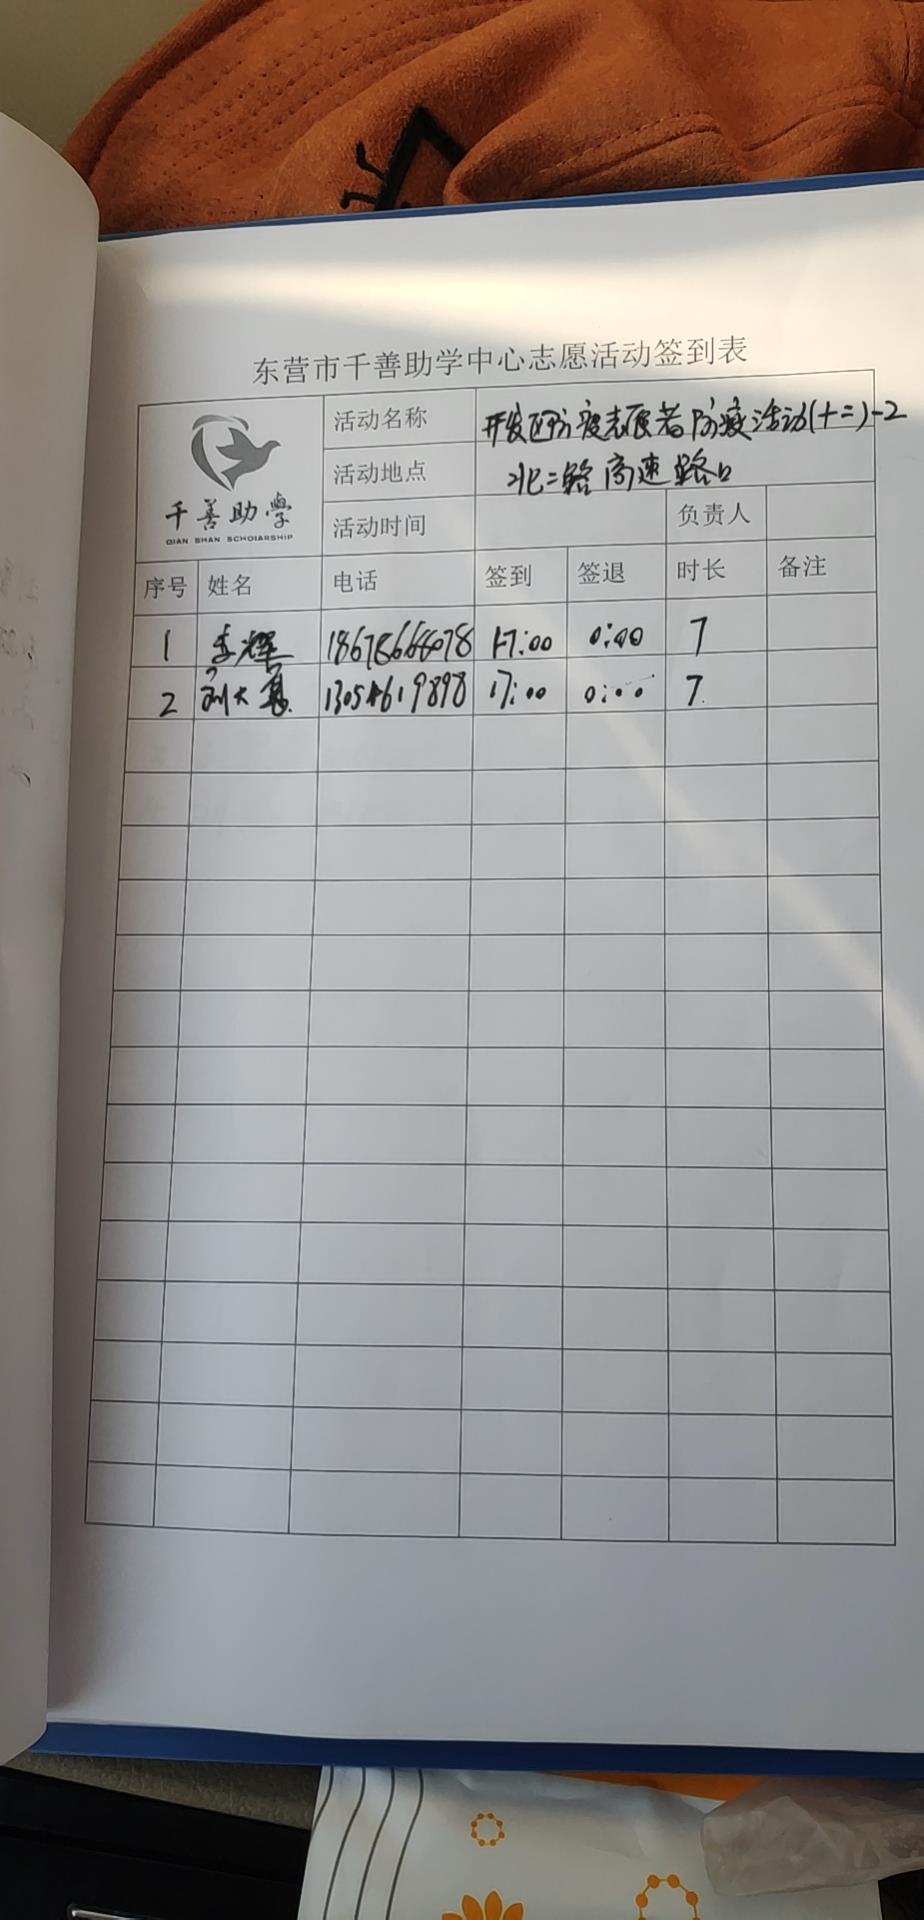 东营市千善助学中心志愿活动签到表
千善助學
QIAN SHAN SCHOIARSHIP
活动名称 开发区防疫志愿者防疫活动(十二)-2
活动地点 北二路高速路口
活动时间 负责人
序号 姓名 电话 签到 签退 时长 备注
1 李辉 17:00 0:00 7
2 刘大 13054619898 17:00 0:00 7